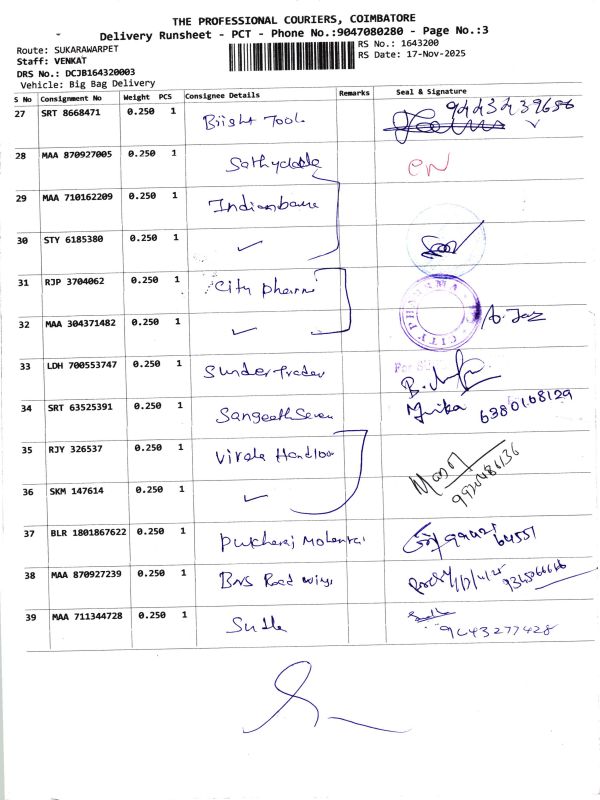 THE PROFESSIONAL COURIERS, COIMBATORE
Delivery Runsheet - PCT - Phone No.:9047080280 - Page No.:3
Route: SUKARAWARPET
RS No.: 1643200
Staff: VENKAT
RS Date: 17-Nov-2025
DRS No.: DCJB164320003
Vehicle: Big Bag Delivery
S No Consignment No Weight PCS Consignee Details Remarks Seal & Signature
27 SRT 8668471 0.250 1 Tools
28 MAA 870927005 0.250 1
29 MAA 710162209 0.250 1
30 STY 6185380 0.250 1 ✓
31 RJP 3704062 0.250 1 City Pharm
CITY PHARMA
32 MAA 304371482 0.250 1 ✓
33 LDH 700553747 0.250 1 Sunder Trader
34 SRT 63525391 0.250 1 6380168129
35 RJY 326537 0.250 1
36 SKM 147614 0.250 1 ✓
37 BLR 1801867622 0.250 1 64551
38 MAA 870927239 0.250 1 Road
39 MAA 711344728 0.250 1 9643277428